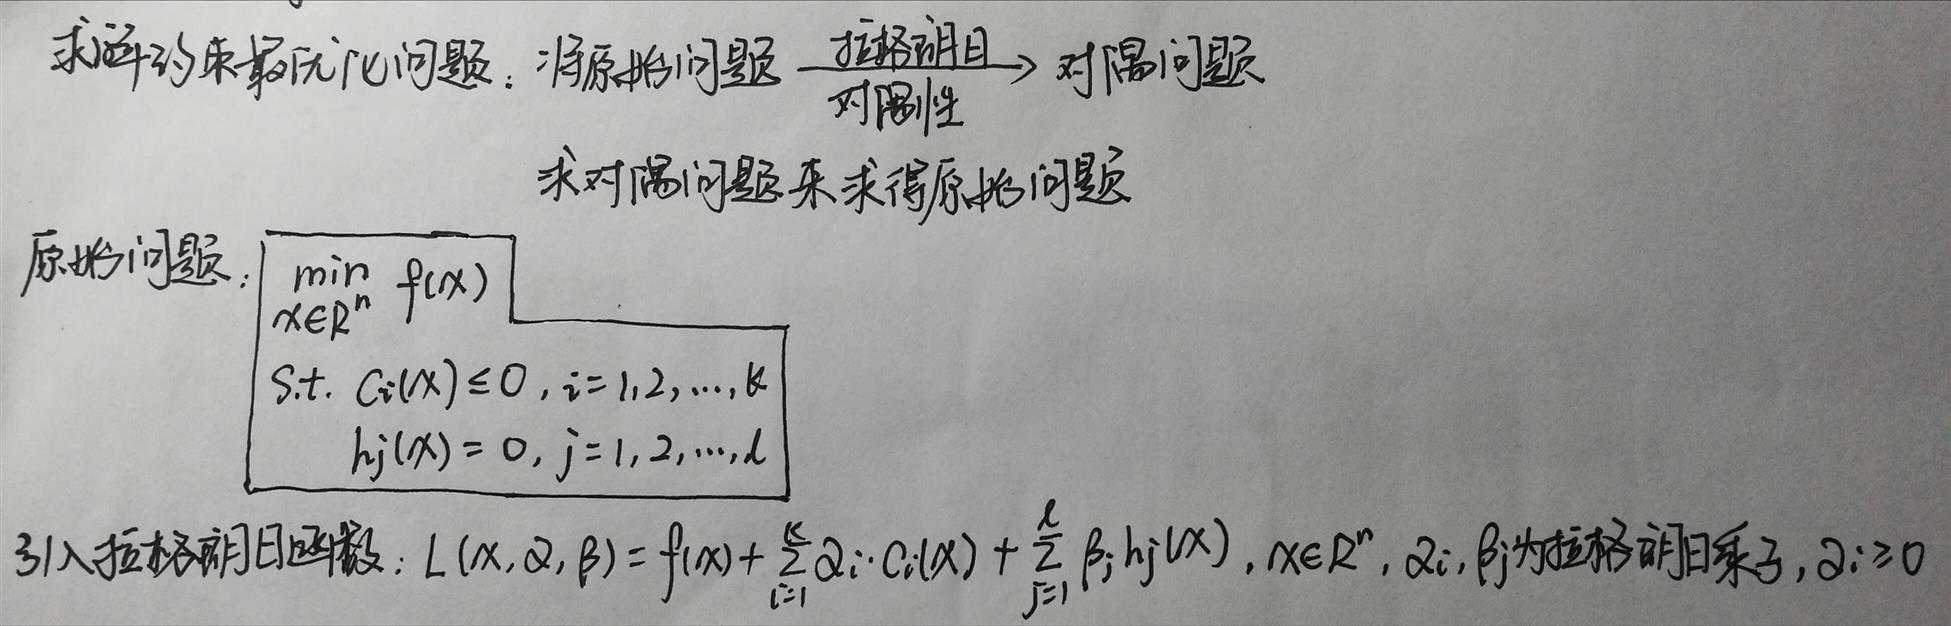 求解约束最优化问题：将原始问题 拉格朗日对偶性 → 对偶问题
求对偶问题来求得原始问题
原始问题：
min f(x)
x∈Rⁿ
s.t. Ci(x)≤0, i=1,2,...,k
hj(x)=0, j=1,2,...,l
引入拉格朗日函数：L(x,α,β)=f(x)+∑_{i=1}^{k} αi·Ci(x)+∑_{j=1}^{l} βj hj(x), x∈Rⁿ, αi, βj为拉格朗日乘子, αi≥0